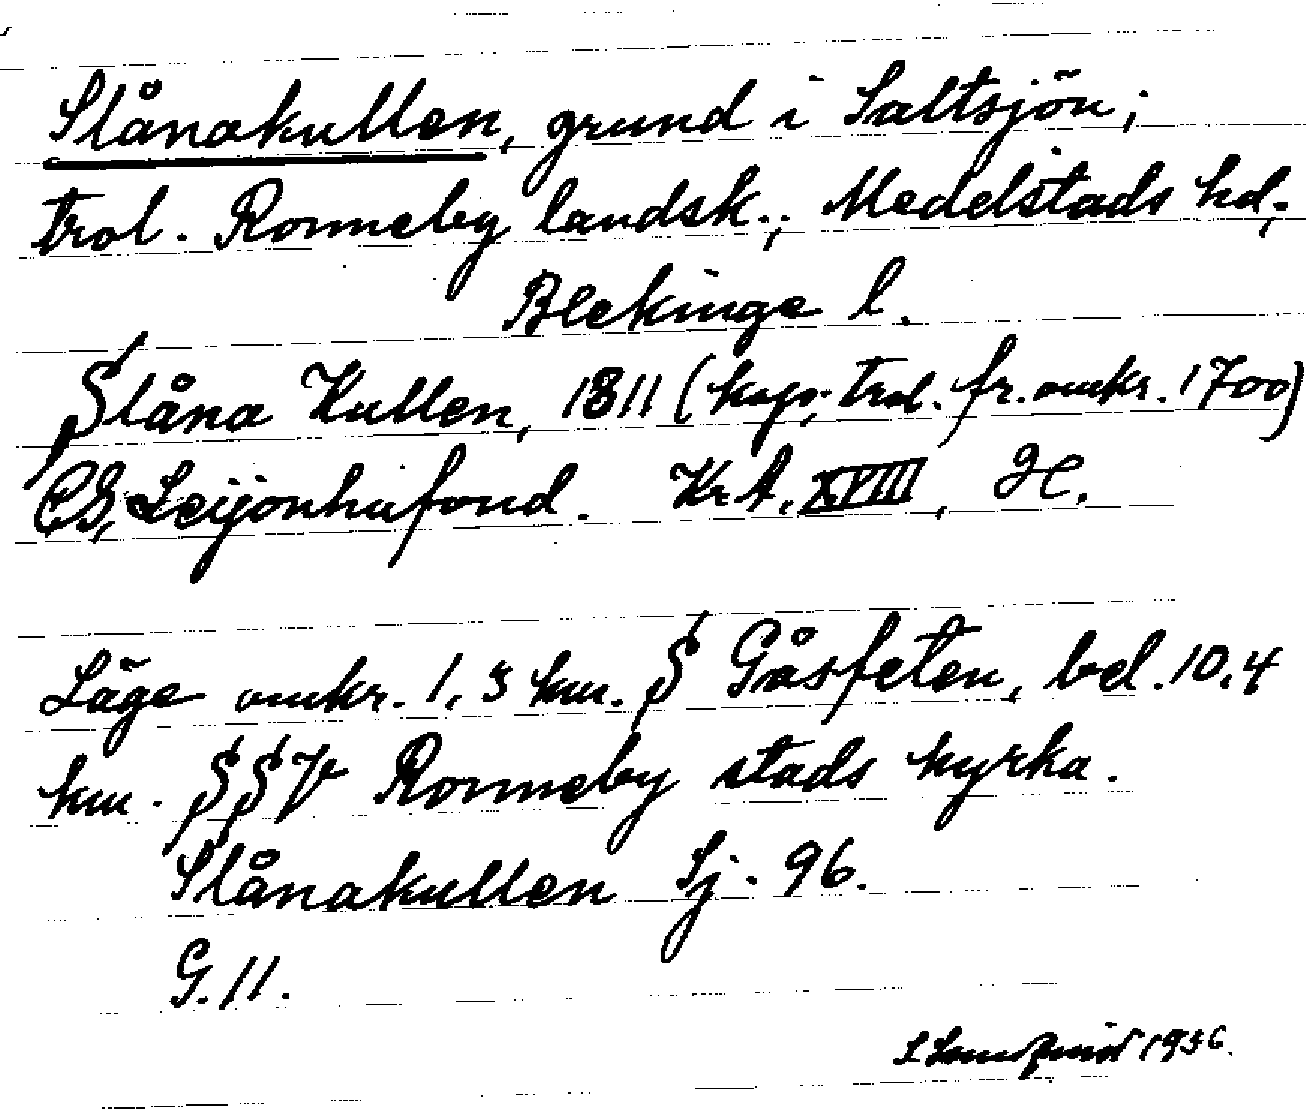 Slånakullen, grund i Saltsjön;
trol. Ronneby landsk.; Medelstads hd,
Blekinge l.
Slåna Kullen, 1811 (kop; trol. fr. omkr. 1700)
CG, Leijonhufvud. Kr.A. XVIII, H.
Läge omkr. 1,3 km. S Gåsfeten, bel. 10,4
km. SSV Ronneby stads kyrka.
Slånakullen Sj. 96.
G. 11.
1936.